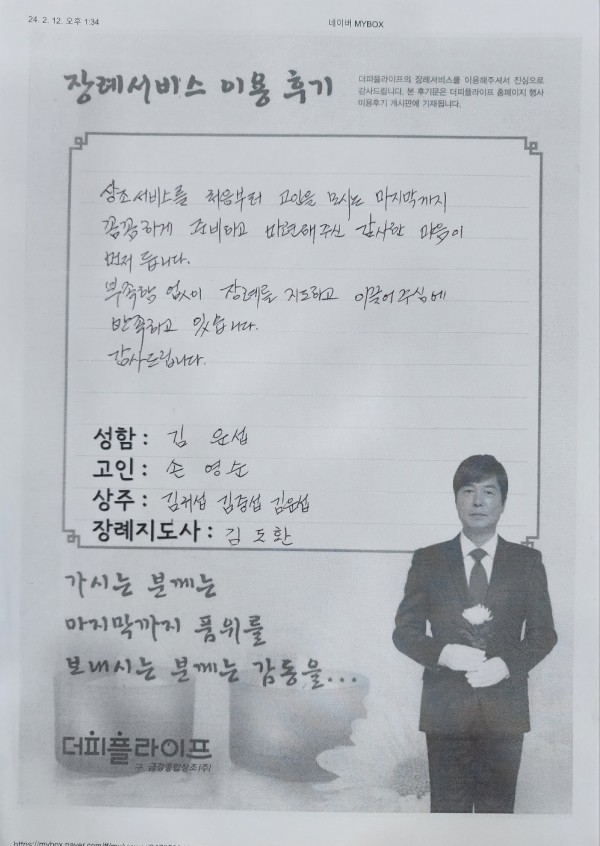 24. 2. 12. 오후 1:34
네이버 MYBOX
장례서비스 이용 후기
더피플라이프의 장례서비스를 이용해주셔서 진심으로
감사드립니다. 본 후기문은 더피플라이프 홈페이지 행사
이용후기 게시판에 기재됩니다.
상조서비스를 처음부터 고인을 모시는 마지막까지
꼼꼼하게 준비하고 마련해주신 감사한 마음이
먼저 듭니다.
부족함 없이 장례를 지도하고 이끌어주심에
만족하고 있습니다.
감사드립니다.
성함 : 김 운섭
고인 : 손 영순
상주 : 김귀섭 김중섭 김운섭
장례지도사 : 김 도환
가시는 분께는
마지막까지 품위를
보내시는 분께는 감동을...
더피플라이프
구. 금강종합상조(주)